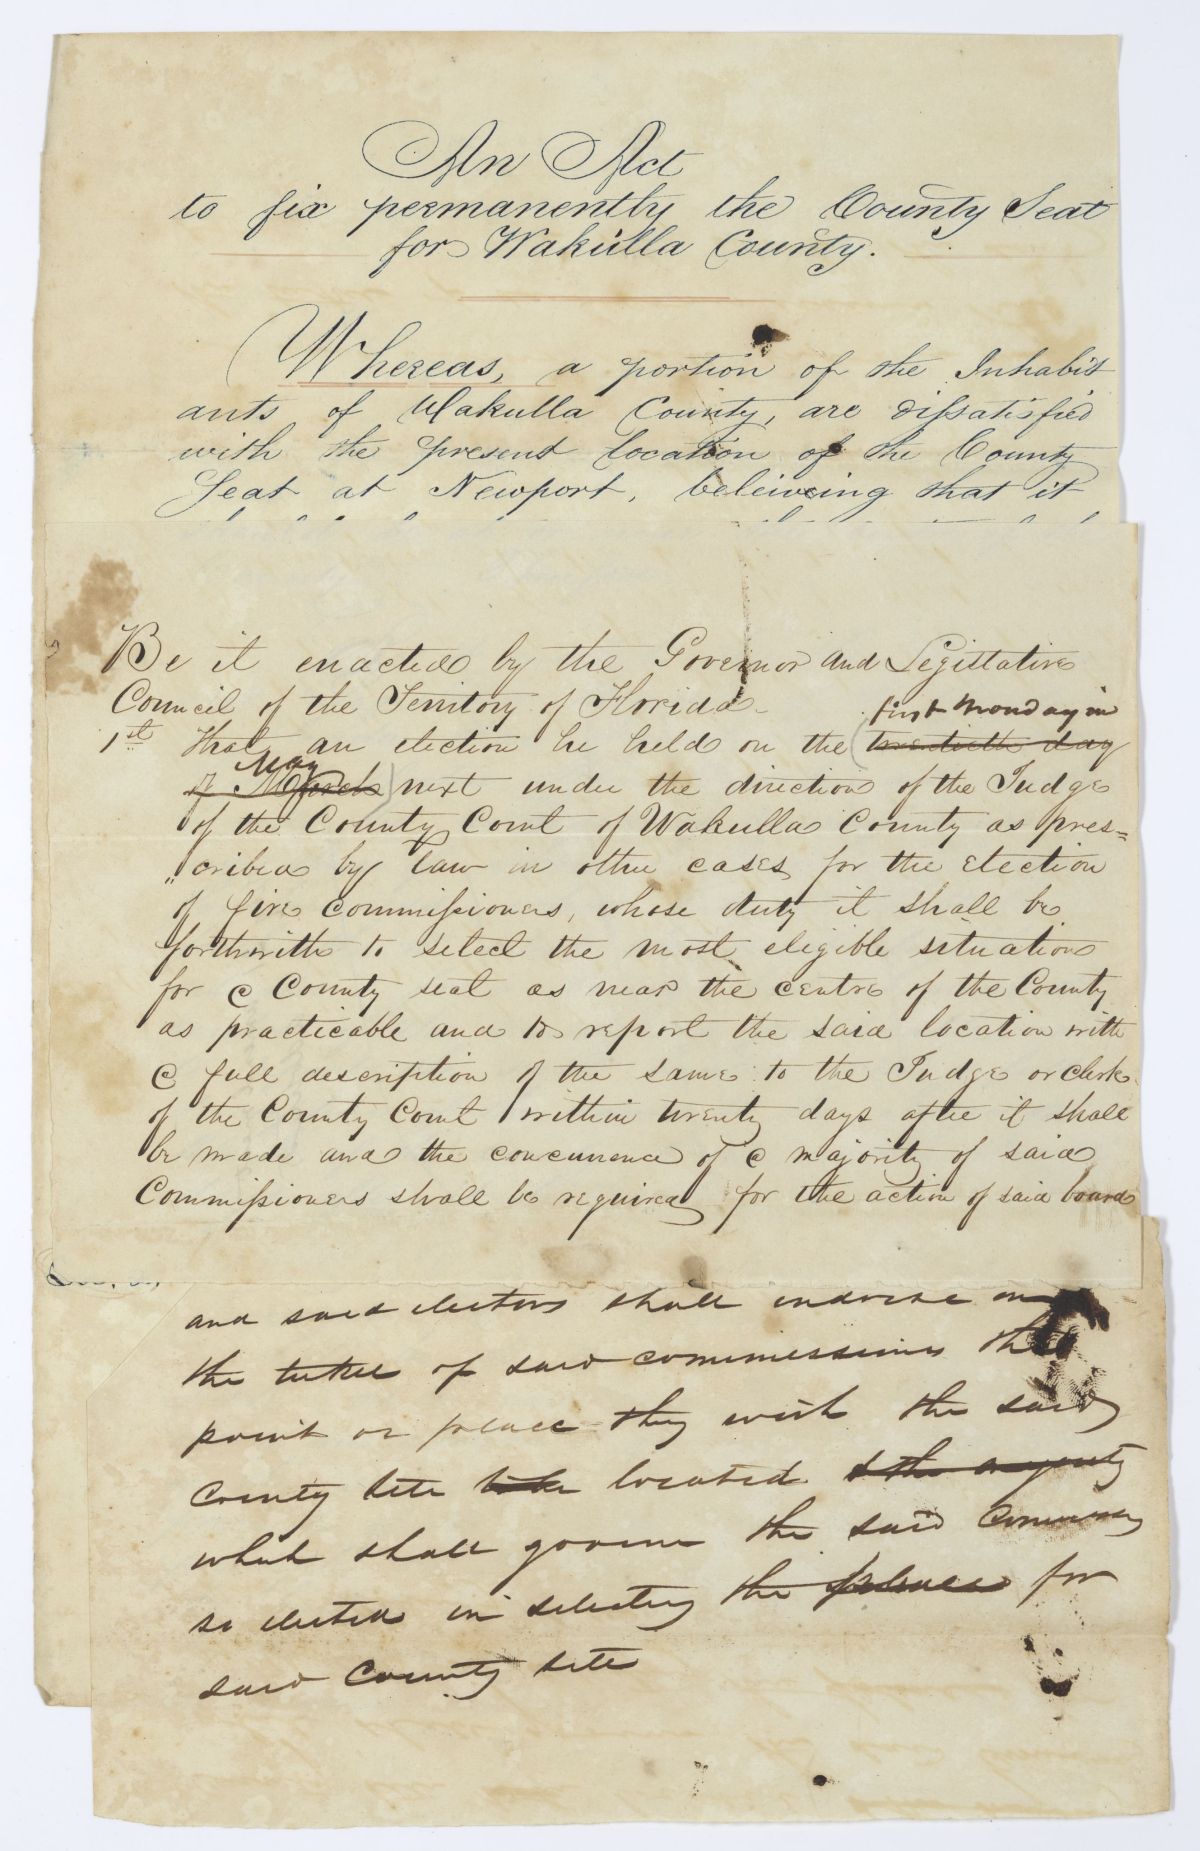 An Act
to fix permanently the County Seat
for Wakulla County.
Whereas, a portion of the Inhabit
ants of Wakulla County, are dissatisfied
with the present location of the County
Seat at Newport, beleiveing that it
Be it enacted by the Governor and Legislative
Council of the Territory of Florida
first Monday in
1st That an election be held on the twentieth day
May
of March next under the direction of the Judge
of the County Court of Wakulla County as pres=
"cribed by law in other cases for the election
of five commissioners, whose duty it shall be
forthwith to select the most eligible situation
for a County seat as near the centre of the County
as practicable and to report the said location with
a full description of the same to the Judge or clerk
of the County Court within twenty days after it shall
be made and the concurrence of a majority of said
Commissioners shall be required for the action of said board
and said electors shall endorse on
the ticket of said commissioners the
point or place they wish the said
County Site located & the majority
which shall govern the said
so elected in selecting the place for
said County site